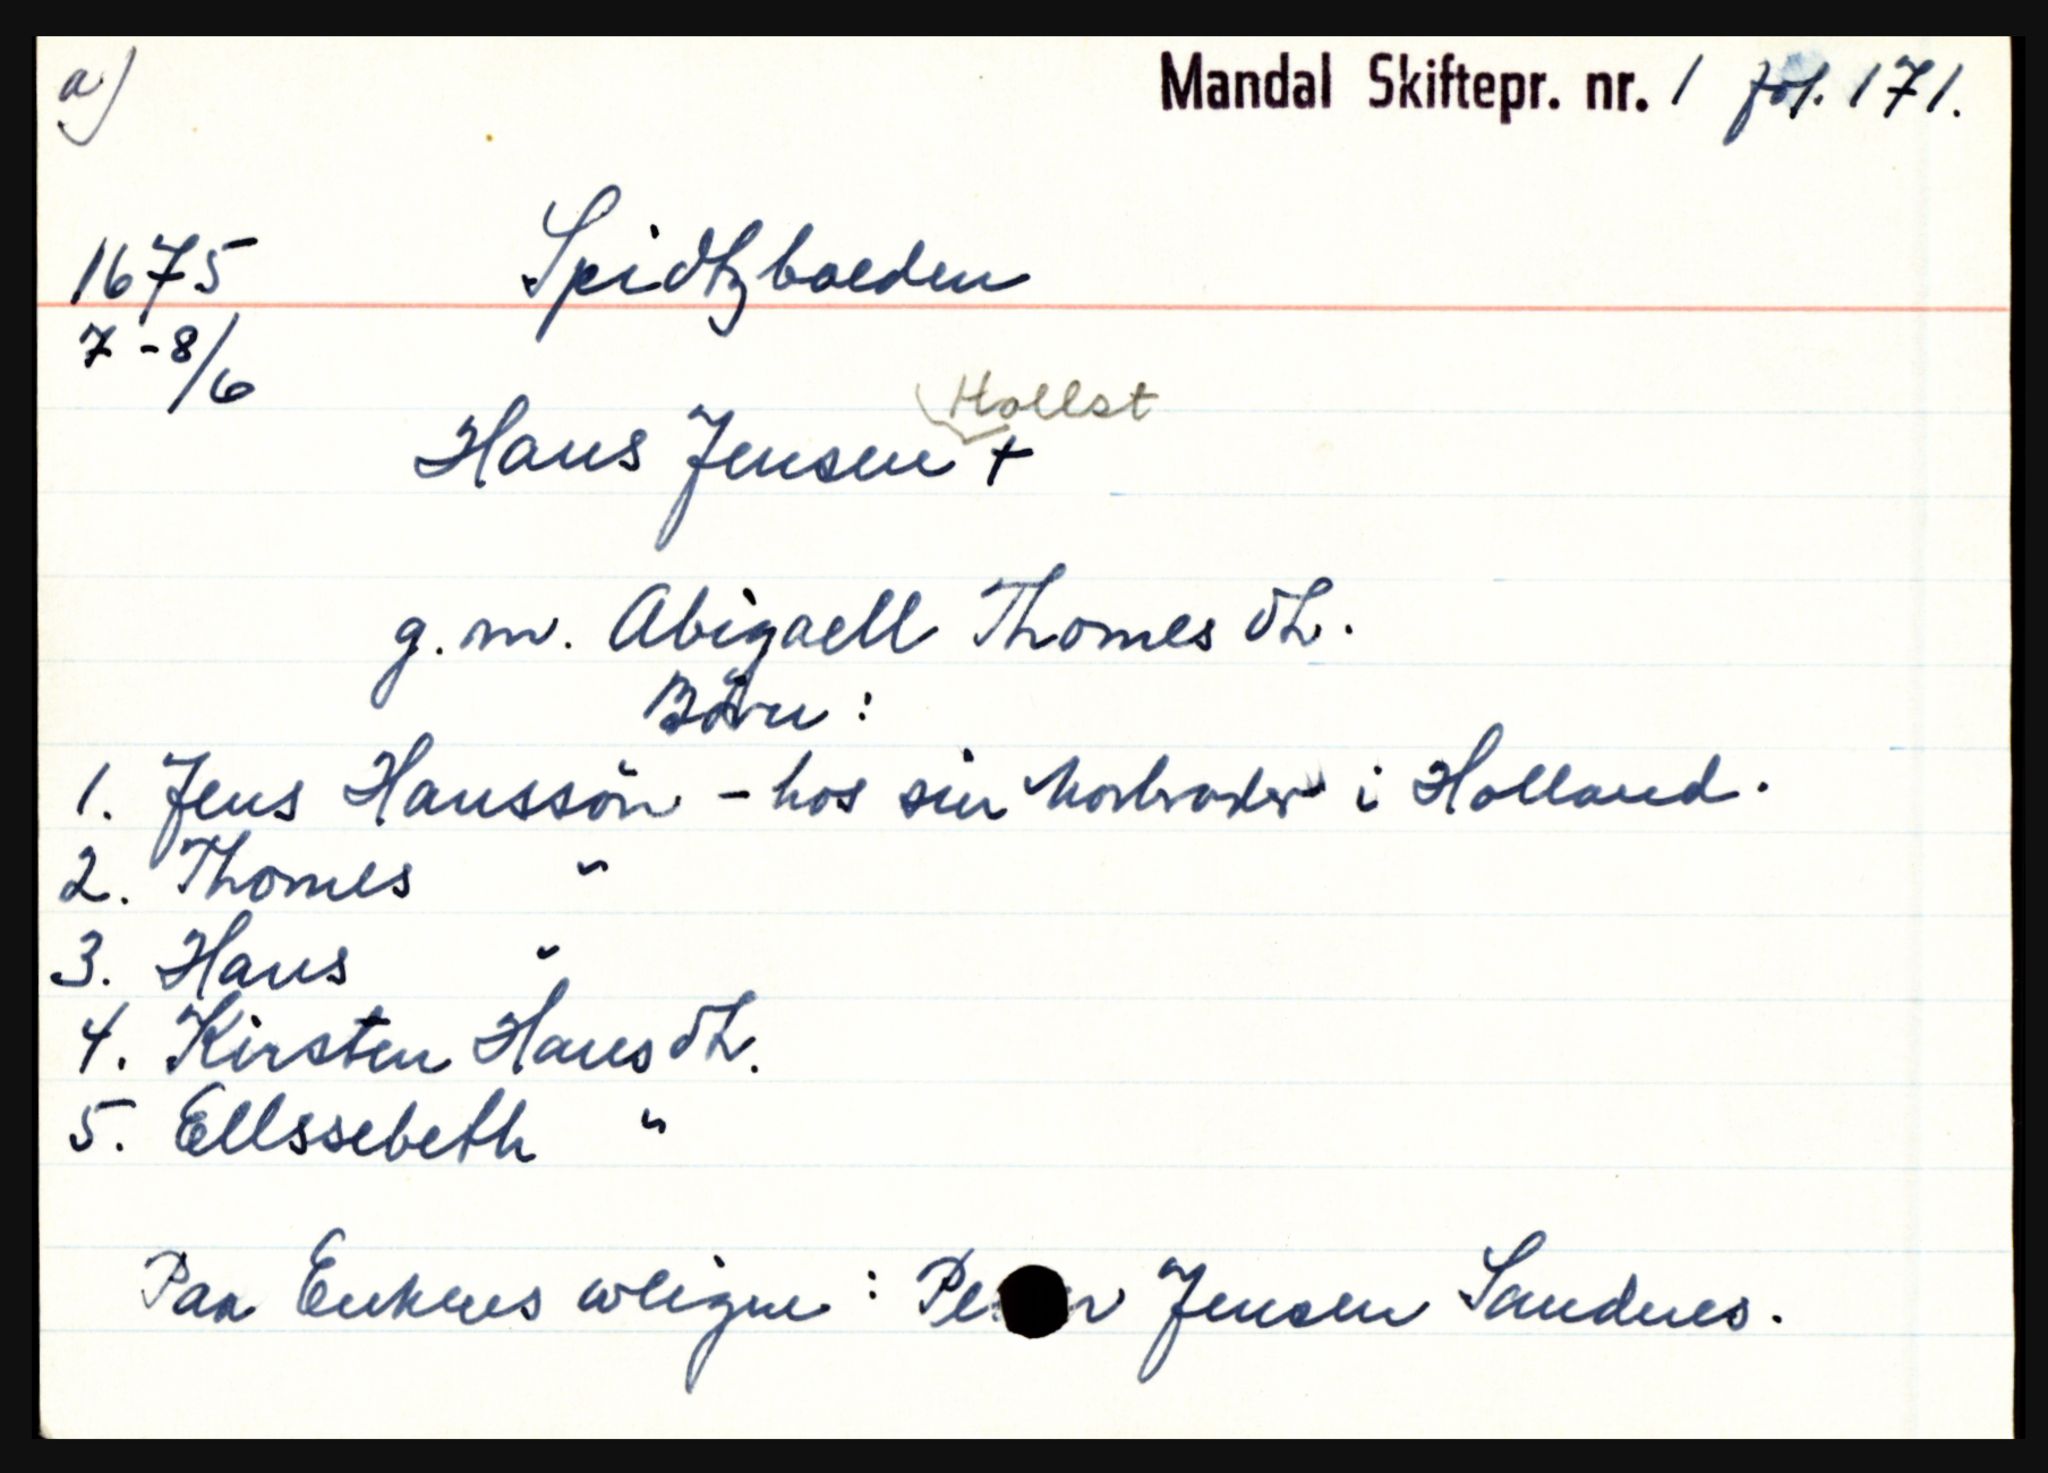 a)
Mandal Skiftepr. nr. 1 fol. 171.
1675 Spidtzboeden
7-8/6
Hollst
Hans Jensen +
g. m. Abigaell Thomes dt.
Börn:
1. Jens Hanssön - hos sin Morbroder i Holland.
2. Thomes "
3. Hans "
4. Kirsten Hans dt.
5. Ellssebeth "
Paa Enkens wegne : Peder Jensen Sandnes.